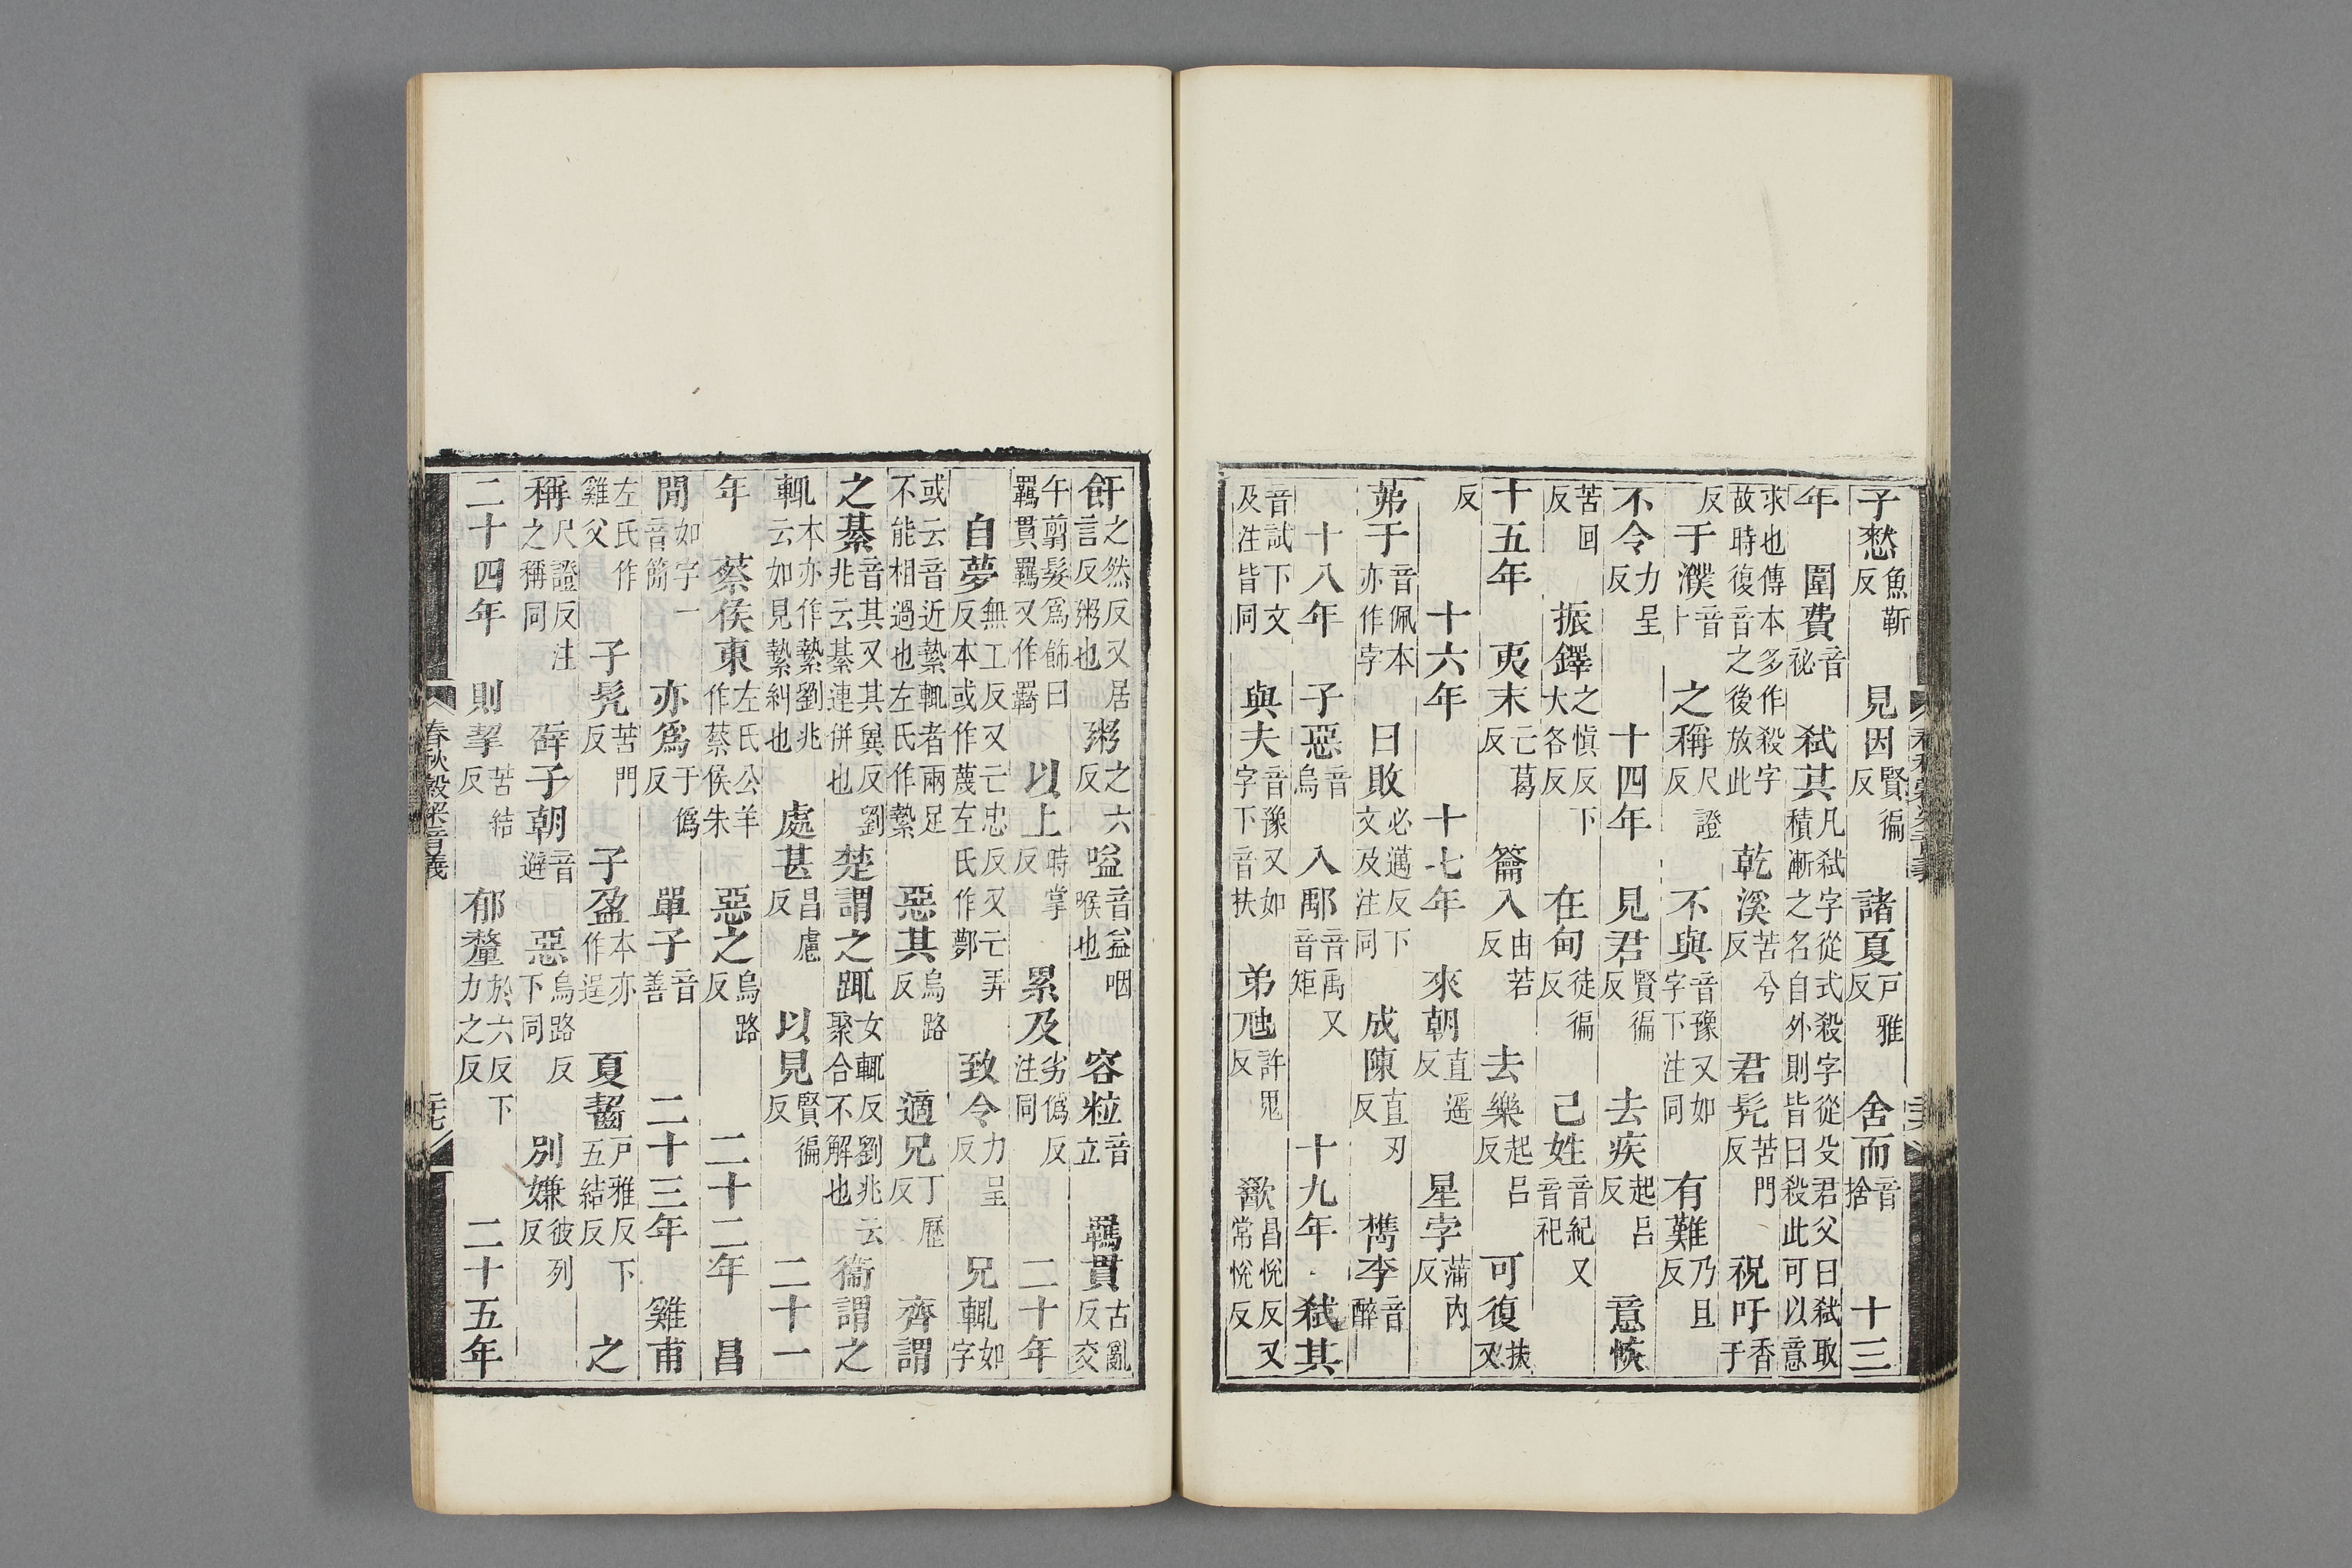 子憖魚靳反 見因賢徧反 諸夏戸雅反 舍而音捨 十三
年 圍費音祕 弑其凡弑字從式殺字從殳君父曰弑取積漸之名自外則皆曰殺此可以意
求也傳本多作殺字故時復音之後放此 乾溪苦兮反 君髠苦門反 祝吁香于
反 于濮音卜 之稱尺證反 不與音豫又如字下注同 有難乃且反
不令力呈反 十四年 見君賢徧反 去疾起呂反 意恢
苦回反 振鐸之愼反下大各反 在甸徒徧反 己姓音紀又音祀
十五年 夷末亡葛反 籥入由若反 去樂起呂反 可復扶又
反 十六年 十七年 來朝直遥反 星孛蒲内反
茀于音佩本亦作孛 曰敗必邁反下文及注同 成陳直刃反 檇李音醉
十八年 子惡音烏 入鄅音禹又音矩 十九年 弑其
音試下文及注皆同 與夫音豫又如字下音扶 弟虺許鬼反 歠昌悅反又常悅反
飦之然反又居言反粥也 粥之六反 嗌音益咽喉也 容粒音立 羈貫古亂反交
午翦髮爲飾曰羈貫羈又作羇 以上時掌反 累及劣僞反注同 二十年
自夢無工反又亡忠反又亡弄反本或作蔑左氏作鄸 致令力呈反 兄輒如字
或云音近縶輒者兩足不能相過也左氏作縶 惡其烏路反 適兄丁歷反 齊謂
之綦音其又其冀反劉兆云綦連併也 楚謂之踂女輒反劉兆云聚合不解也 衞謂之
輒本亦作縶劉兆云如見縶糾也 處甚昌慮反 以見賢徧反 二十一
年 蔡侯東左氏公羊作蔡侯朱 惡之烏路反 二十二年 昌
閒如字一音簡 亦爲于僞反 單子音善 二十三年 雞甫
左氏作雞父 子髠苦門反 子盈本亦作逞 夏齧戸雅反下五結反 之
稱尺證反注之稱同 辟子朝音避 惡烏路反下同 別嫌彼列反
二十四年 則挈苦結反 郁釐於六反下力之反 二十五年
春秋穀梁音義